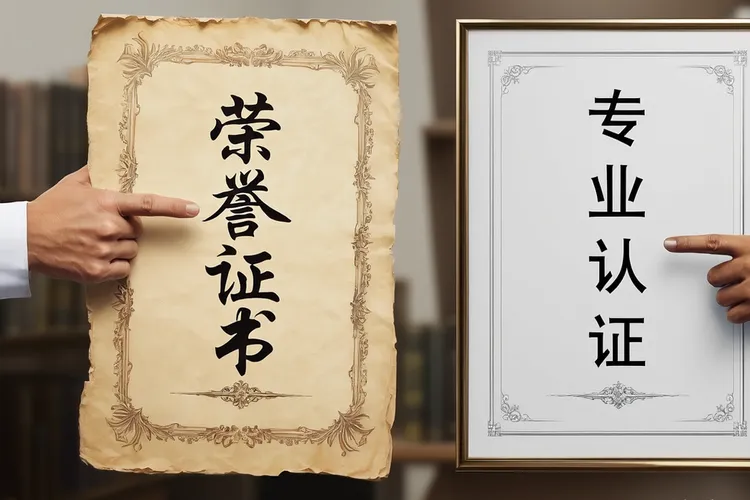 荣誉证书
专业认证